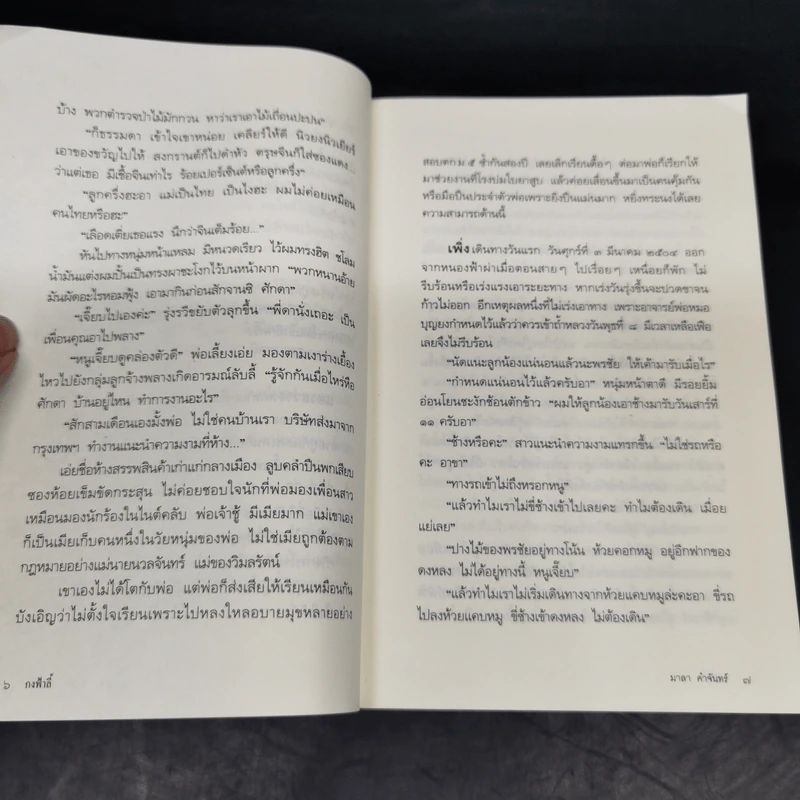 บ้าง พวกตำรวจป่าไม้มักกวน หาว่าเราเอาไม้เถื่อนปะปน"
"ก็ธรรมดา เข้าใจเขาหน่อย เคลียร์ให้ดี นิวยงนิวเยียร์
เอาของขวัญไปให้ สงกรานต์ก็ไปดำหัว ตรุษจีนก็ใส่ซองแดง...
ว่าแต่เธอ มีเชื้อจีนเท่าไร ร้อยเปอร์เซ็นต์หรือลูกครึ่ง"
"ลูกครึ่งฮะอา แม่เป็นไทย เป็นไงฮะ ผมไม่ค่อยเหมือน
คนไทยหรือฮะ"
"เลือดเตี่ยเธอแรง นึกว่าจีนเต็มร้อย..."
หันไปทางหนุ่มหน้าแหลม มีหนวดเรียว ไว้ผมทรงฮิต ชโลม
น้ำมันแต่งผมปั้นเป็นทรงผาชะโงกไว้บนหน้าผาก "พวกหนานอ้าย
มันผัดอะไรหอมฟุ้ง เอามากินก่อนสักจานซิ ศักดา"
"เจี๊ยบไปเองค่ะ" รุ่งรวีขยับตัวลุกขึ้น "พี่ดานั่งเถอะ เป็น
เพื่อนคุณอาไปพลาง"
"หนูเจี๊ยบดูคล่องตัวดี" พ่อเลี้ยงเอ่ย มองตามเงาร่างเยื้อง
ไหวไปยังกลุ่มลูกจ้างพลางเกิดอารมณ์ลับลี้ "รู้จักกันเมื่อไหร่หือ
ศักดา บ้านอยู่ไหน ทำการงานอะไร"
"สักสามเดือนเองมั้งพ่อ ไม่ใช่คนบ้านเรา บริษัทส่งมาจาก
กรุงเทพฯ ทำงานแนะนำความงามที่ห้าง..."
เอ่ยชื่อห้างสรรพสินค้าเก่าแก่กลางเมือง ลูบคลำปืนพกเสียบ
ซองห้อยเข็มขัดกระสุน ไม่ค่อยชอบใจนักที่พ่อมองเพื่อนสาว
เหมือนมองนักร้องในไนต์คลับ พ่อเจ้าชู้ มีเมียมาก แม่เขาเอง
ก็เป็นเมียเก็บคนหนึ่งในวัยหนุ่มของพ่อ ไม่ใช่เมียถูกต้องตาม
กฎหมายอย่างแม่นายนวลจันทร์ แม่ของวิมลรัตน์
เขาเองไม่ได้โตกับพ่อ แต่พ่อก็ส่งเสียให้เรียนเหมือนกัน
บังเอิญว่าไม่ตั้งใจเรียนเพราะไปหลงใหลอบายมุขหลายอย่าง
๖ กงฟ้าลี้
สอบตก ม ๕ ซ้ำกันสองปี เลยเลิกเรียนดื้อๆ ต่อมาพ่อก็เรียกให้
มาช่วยงานที่โรงบ่มใบยาสูบ แล้วค่อยเลื่อนขึ้นมาเป็นคนคุ้มกัน
หรือมือปืนประจำตัวพ่อเพราะยิงปืนแม่นมาก หยิ่งทระนงได้เลย
ความสามารถด้านนี้
เพิ่งเดินทางวันแรก วันศุกร์ที่ ๓ มีนาคม ๒๕๐๔ ออก
จากหนองฟ้าผ่าเมื่อตอนสายๆ ไปเรื่อยๆ เหนื่อยก็พัก ไม่
รีบร้อนหรือเร่งแรงเอาระยะทาง หากเร่งวันรุ่งขึ้นจะปวดขาจน
ก้าวไม่ออก อีกเหตุผลหนึ่งที่ไม่เร่งเอาทาง เพราะอาจารย์พ่อหมอ
บุญยงกำหนดไว้แล้วว่าควรเข้าถ้ำหลวงวันพุธที่ ๘ มีเวลาเหลือเฟือ
เลยจึงไม่รีบร้อน
"นัดแนะลูกน้องแน่นอนแล้วนะพรชัย ให้เค้ามารับเมื่อไร"
"กำหนดแน่นอนไว้แล้วครับอา" หนุ่มหน้าตาดี มีรอยยิ้ม
อ่อนโยนชะงักช้อนตักข้าว "ผมให้ลูกน้องเอาช้างมารับวันเสาร์ที่
๑๑ ครับอา"
"ช้างหรือคะ" สาวแนะนำความงามแทรกขึ้น "ไม่ใช่รถหรือ
คะ อาขา"
"ทางรถเข้าไม่ถึงหรอกหนู"
"แล้วทำไมเราไม่ขี่ช้างเข้าไปเลยคะ ทำไมต้องเดิน เมื่อย
แย่เลย"
"ปางไม้ของพรชัยอยู่ทางโน้น ห้วยคอกหมู อยู่อีกฟากของ
ดงหลง ไม่ได้อยู่ทางนี้ หนูเจี๊ยบ"
"แล้วทำไมเราไม่เริ่มเดินทางจากห้วยแคบหมูล่ะคะอา ขี่รถ
ไปลงห้วยแคบหมู ขี่ช้างเข้าดงหลง ไม่ต้องเดิน"
มาลา คำจันทร์ ๗